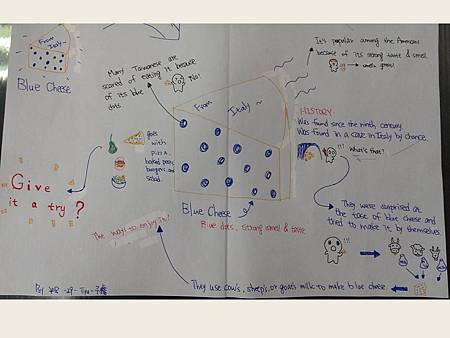 From
Italy~
Blue Cheese
Many Taiwanese are
scared of eating it because
of its blue
dots.
No!
It's popular among the American
because of its strong taste & smell.
smells great!
From
Italy~
HISTORY.
Was found since the ninth century.
Was found in a cave in Italy by chance.
!!!
What's that?
goes
with
pizza
baked
burgers, and
salad.
Give
it a try?
Blue Cheese
Blue dots, strong smell & taste
They were surprised at
the taste of blue cheese and
tried to make it by themselves.
The way to enjoy it!
!!!
They use cow's, sheep's, or goat's milk to make blue cheese.
By
-29-